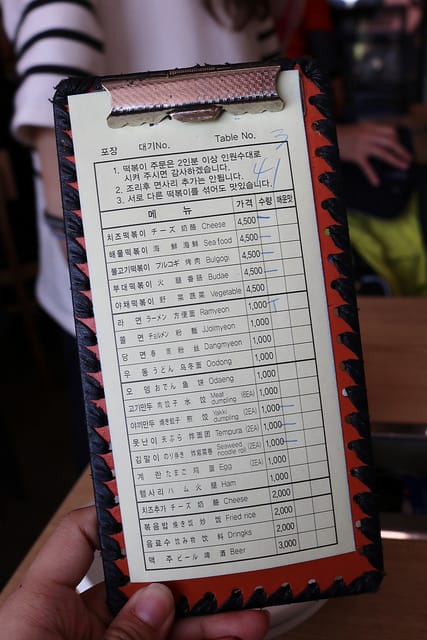 포장 대기No. Table No. 3
41
1. 떡볶이 주문은 2인분 이상 인원수대로
시켜 주시면 감사하겠습니다.
2. 조리후 면사리 추가는 안됩니다.
3. 서로 다른 떡볶이를 섞어도 맛있습니다.
메 뉴 가격 수량 매운맛
치즈떡볶이 チーズ 奶酪 Cheese 4,500
해물떡볶이 海鮮 海鲜 Sea food 4,500
불고기떡볶이 プルコギ 烤肉 Bulgogi 4,500
부대떡볶이 火腿香肠 Budae 4,500
야채떡볶이 野菜 蔬菜 Vegetable 4,500
라 면 ラーメン 方便面 Ramyeon 1,000
쫄 면 チョルメン 粉 Jjolmyeon 1,000
당 면 春雨 粉丝 Dangmyeon 1,000
우 동 うどん 乌冬面 Oodong 1,000
오 뎅 おでん 鱼饼 Odaeng 1,000
고기만두 肉餃子 水饺 Meat dumpling (6EA) 1,000
야끼만두 焼き餃子 煎饺 Yakki dumpling (2EA) 1,000
못난이 天ぷら 炸面团 Tempura (2EA) 1,000
김말이 のり巻き 炸紫菜卷 Seaweed noodle roll (2EA) 1,000
계 란 たまご 鸡蛋 Egg (2EA) 1,000
햄사리 ハム 火腿 Ham 1,000
치즈추가 チーズ 奶酪 Cheese 2,000
볶음밥 焼き飯 炒饭 Fried rice 2,000
음료수 飲み物 饮料 Dringks 2,000
맥 주 ビール 啤酒 Beer 3,000